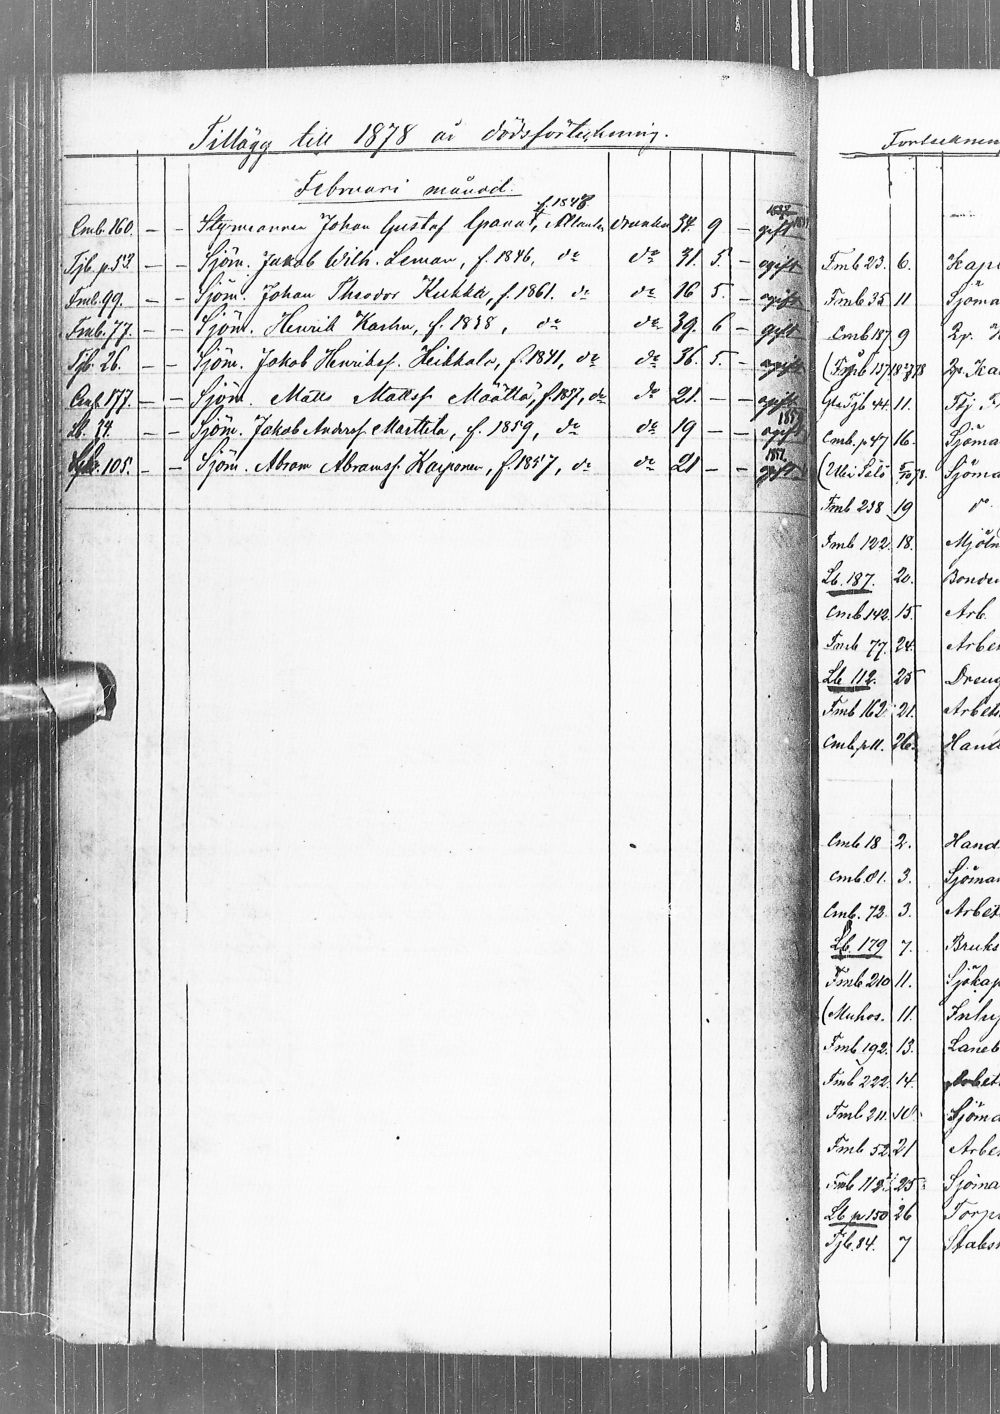 Tillägg till 1878 år dödsförteckning.
Februari månad.
f. 1848
Cmb 160. — — Styrmannen Johan Gustaf Granat, Atlanten drunkn 34 9 — gift
Tjb. p 53 — — Sjöm. Jakob Wilh. Leman, f. 1846, do do 31. 5. — ogift
Fmb. 99. — — Sjöm. Johan Theodor Kukka, f. 1861. do do 16 5. — ogift
Fmb. 77. — — Sjöm. Henrik Karhu, f. 1838, do do 39. 6 — gift
Tjb. 26. — — Sjöm. Jakob Henriksf. Heikkala, f. 1841, do do 36. 5. — ogift
Cmb 177. — — Sjöm. Matts Mattsf Määttä, f. 187, do do 21. — — ogift
Lb. 34. — — Sjöm. Jakob Andersf Marttila, f. 1859, do do 19 — — ogift
105. — — Sjöm. Abram Abramsf. Karponen, f. 1857, do do 21 — — gift
Fortecknin
Fmb 23. 6. Kap
Fmb 35 11 Sjöma
Cmb 187 9
137
Tjb 44. 11.
Cmb. p 47 16. Sjöma
Sjöma
Fmb 238 19 do
Fmb 122. 18. Mjöln
Lb. 187. 20. Bonde
Cmb 142. 15. Arb.
Fmb 77. 24. Arbe
Lb 112. 25 Dreng
Fmb 162 21. Arbet
Cmb. p 11. 26. Hand
Cmb 18 2. Hand
Cmb. 81. 3. Sjöman
Cmb. 72. 3. Arbet
Lb. 179 7. Bruks
Fmb 210 11. Sjökap
(Muhos. 11. Inhy
Fmb 192. 13. Laneb
Fmb 222. 14. Arbet
Fmb 211. 18. Sjöma
Fmb 52. 21 Arbe
Fmb 112 25 Sjöma
Lb p 150 26 Torp
Tjb. 84. 7 Stabs